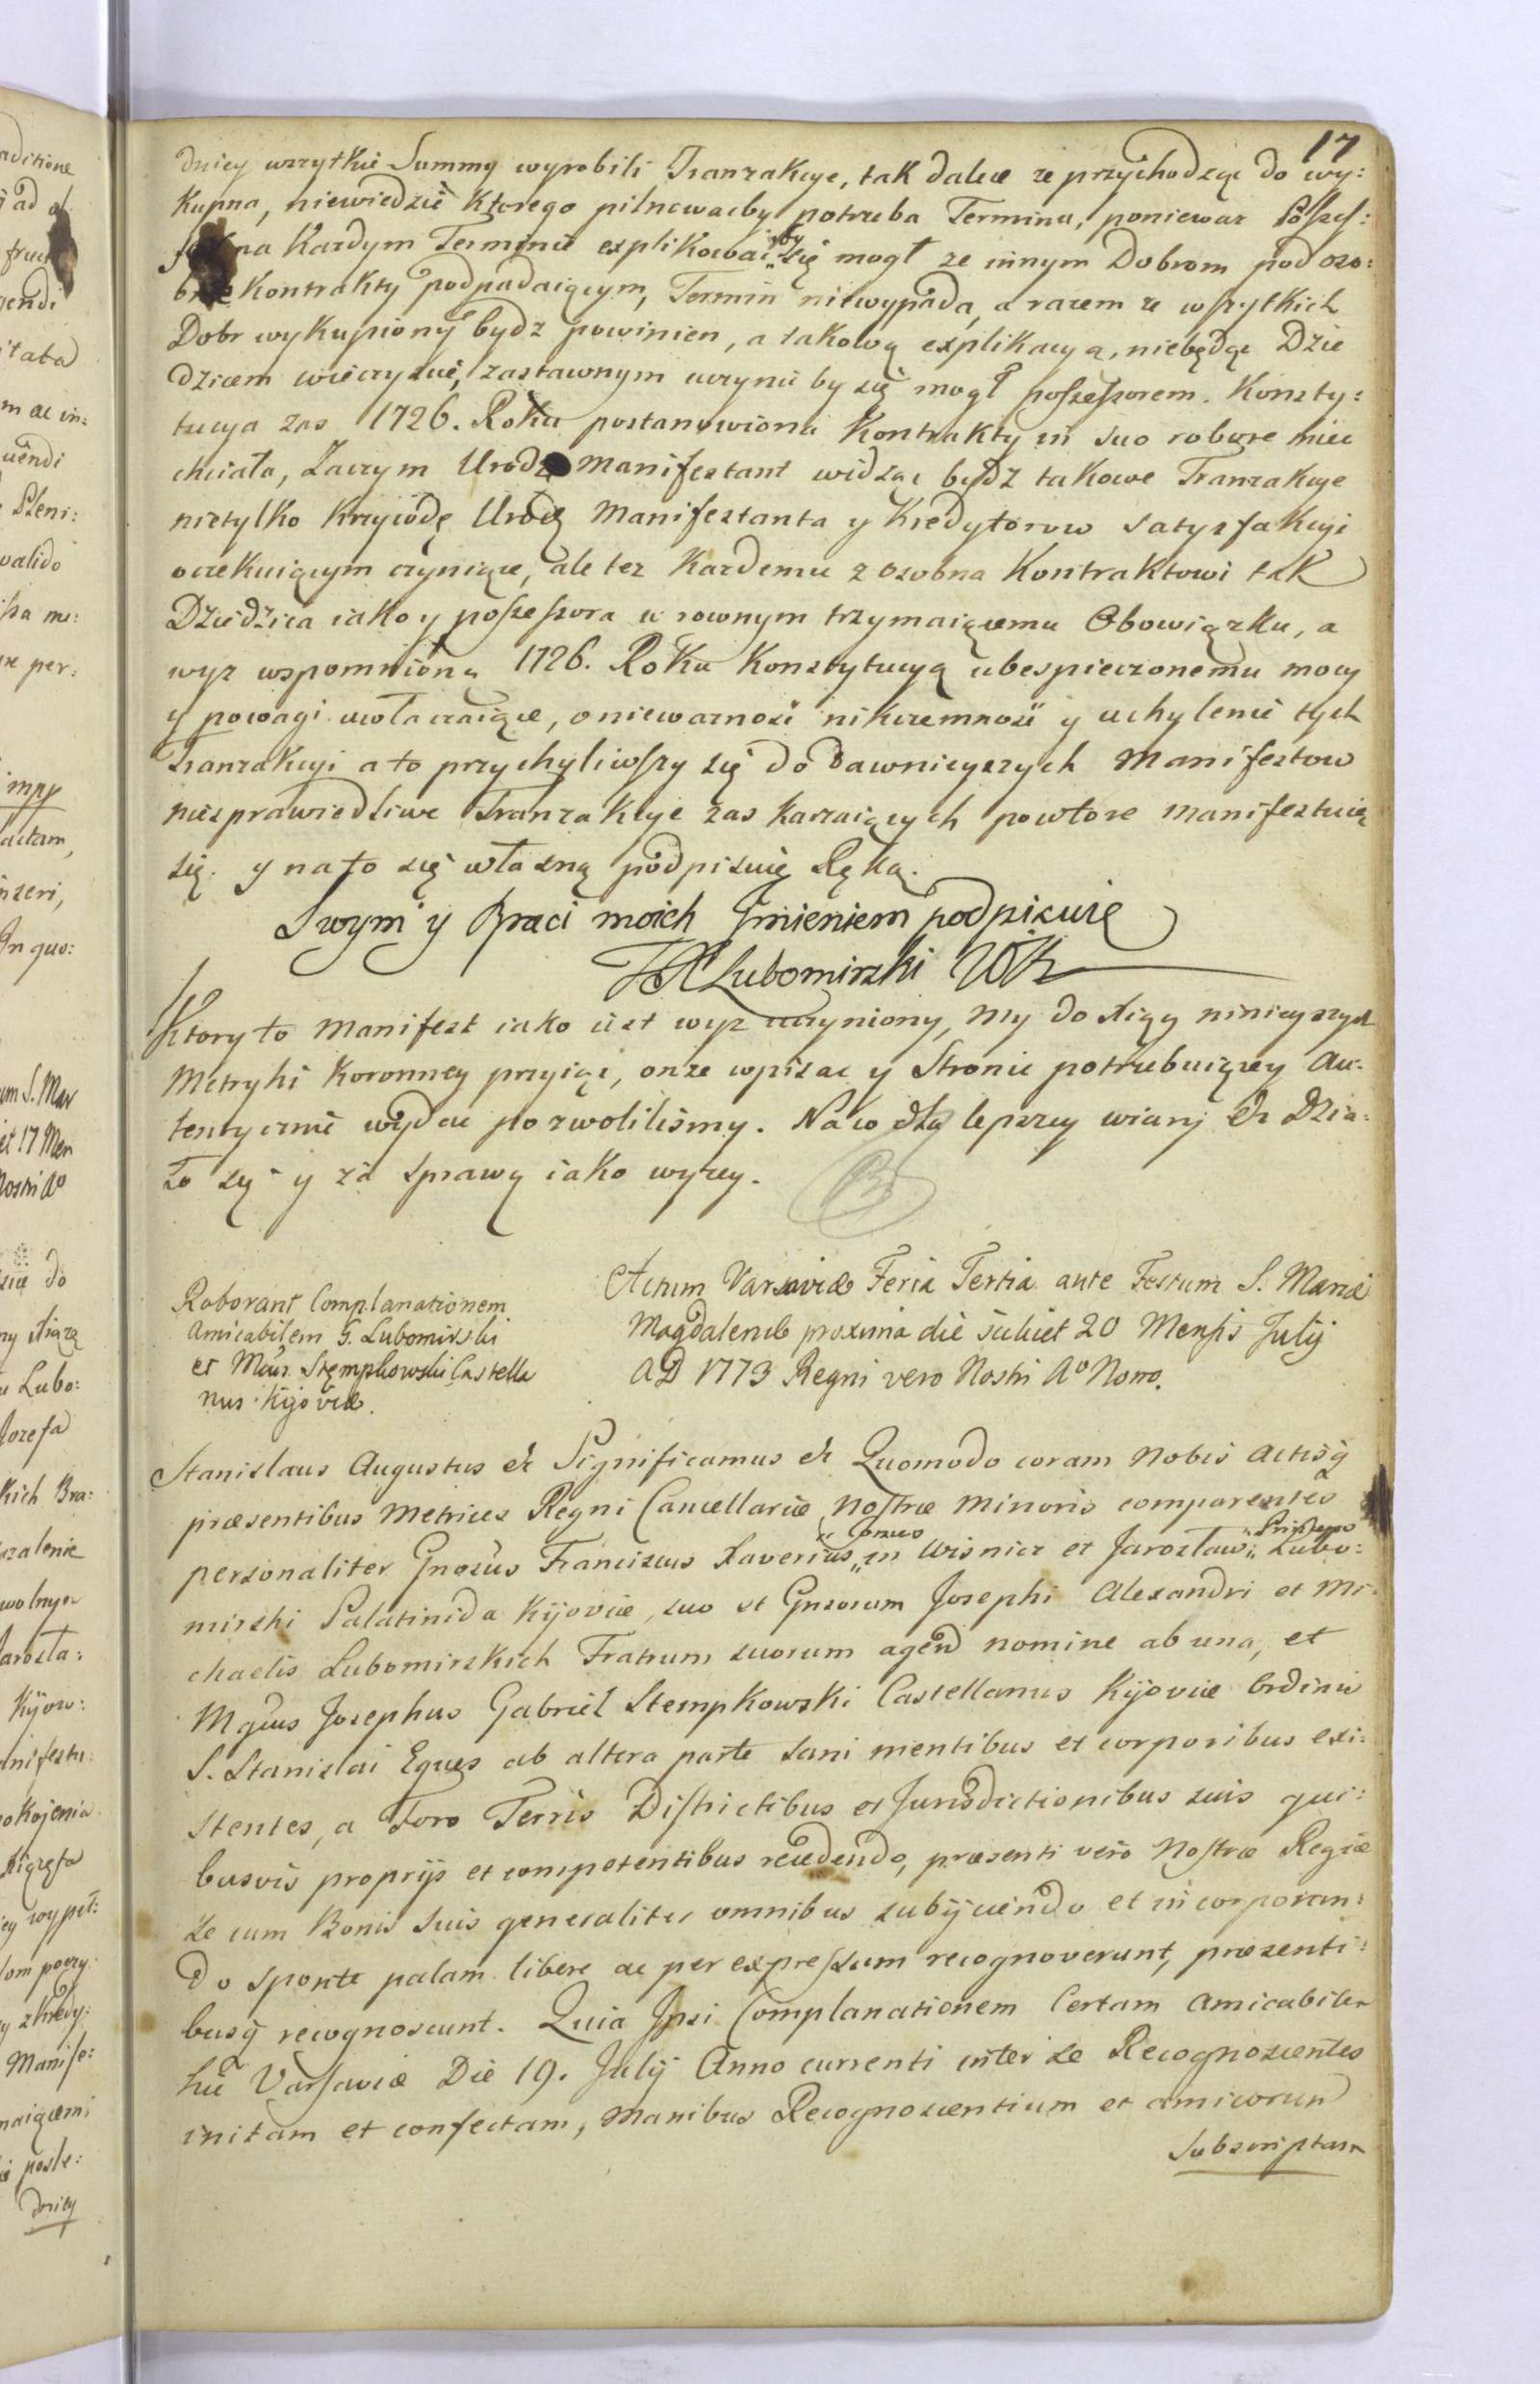 17
dniey wszytkie Summy wyrobili Tranzakcye, tak dalece ze przychodząc do wy:
kupna, niewiedzić ktorego pilnowacby potrzeba Terminu, poniewaz Possess:
na Kazdym Terminie explikowac by się mogł ze innym Dobrom pod oso:
bne Kontrakty podpadaiącym, Termin niewypada, a razem ze wszytkich
Dobr wykupiony bydz powinien, a takową explikacyą, niebędąc Dzie
dzicem wieczyście, zastawnym uczynić by się mogł possessorem. Konsty:
tucya zas 1726. Roku postanowiona Kontrakty in suo robore miec
chciała, Zaczym Urodz Manifestant widząc bydz takowe Tranzakcye
nietylko Krzywdę Urodz Manifestanta y Kredytorow satysfakcyi
oczekuiącym czyniące, ale tez Kazdemu z osobna Kontraktowi tak
Dziedzica iako y possessora w rownym trzymaiącemu Obowiązku, a
wyz wspomnioną 1726. Roku Konstytucyą ubespieczonemu mocy
y powagi uwłaczaiące, o niewaznosć nikczemność y uchylenie tych
Tranzakcyi a to przychyliwszy się do dawnieyszych Manifestow
niesprawiedliwe Tranzakcye zaskarzaiących powtore manifestuią
się. y na to się własną podpisuię Ręką.
Swym y Braci moich Jmieniem podpisuie
FX Lubomirski WK
Ktory to Manifest iako iest wyz uczyniony, My do Xiąg ninieyszych
Metryki Koronney przyiąć, onze wpisac y Stronie potrzebuiącey au:
tentycznie wydac pozwoliliśmy. Na co dla lepszey wiary &c Dzia:
ło się y za sprawą iako wyzey.
Roborant Complanationem
Amicabilem G. Lubomirski
et Mcus Stempkowski Castella
nus Kijoviæ.
Actum Varsaviæ Feria Tertia ante Festum S. Mariæ
Magdalenæ proxima die scilicet 20 Mensis Julij
AD 1773 Regni vero Nostri Aº Nono.
Stanislaus Augustus &c Significamus &c Quomodo coram Nobis Actisq
præsentibus Metrices Regni Cancellariæ Nostræ Minoris comparentes
personaliter Gnosus Franciscus Xaverius Comes in Wisnicz et Jarosław Princeps Lubo:
mirski Palatinida Kijoviæ, suo et Gnsorum Josephi Alexandri et Mi:
chaelis Lubomirskich Fratrum suorum agend nomine ab una, et
Mgcus Josephus Gabriel Stempkowski Castellanus Kijoviæ Ordinis
S. Stanislai Eques ab altera parte sani mentibus et corporibus exi:
stentes, a Foro Terris Districtibus et Jurisdictionibus suis qui:
busvis proprijs et competentibus recedendo, præsenti vero Nostræ Regiæ
se cum Bonis suis generaliter omnibus subijciendo et incorporan:
do sponte palam libere ac per expressum recognoverunt, præsenti:
busq recognoscunt. Quia Ipsi Complanationem Certam Amicabilem
hic Varsaviæ Die 19. Julij Anno currenti inter se Recognoscentes
initam et confectam, Manibus Recognoscentium et amicorum
Subscriptam